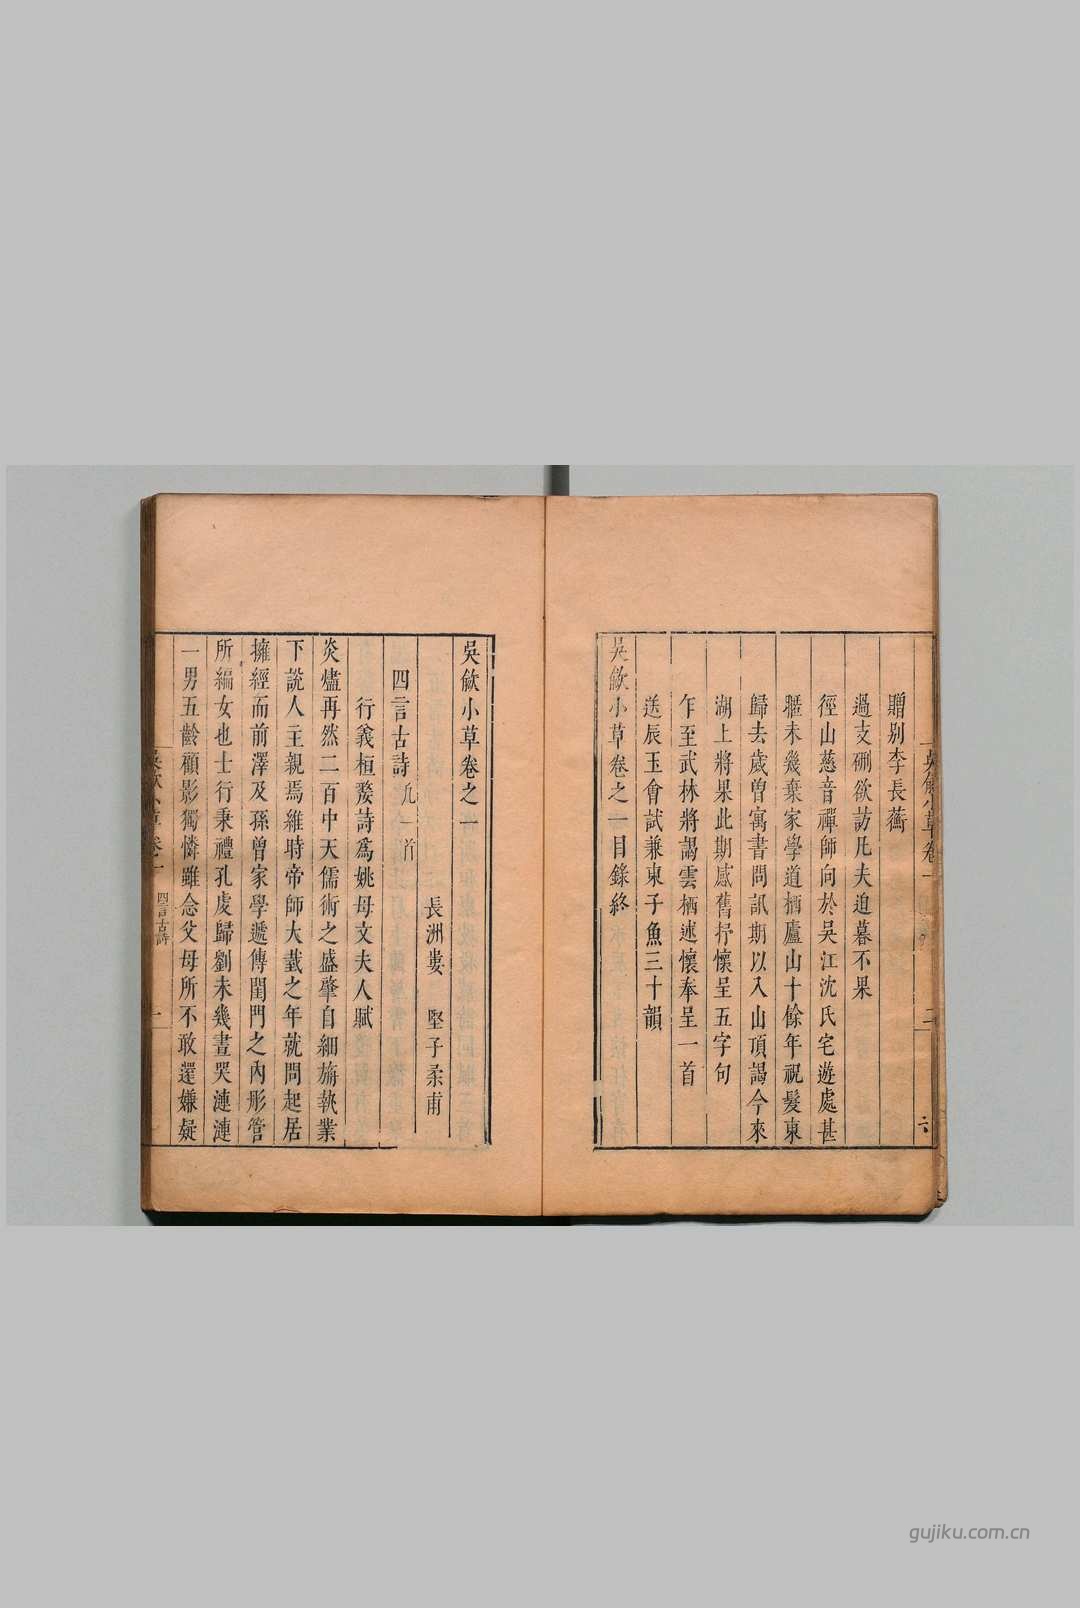 贈别李長蘅
過支硎欲訪凡夫迫暮不果
徑山慈音禪師向於吳江沈氏宅遊處甚
驩未幾棄家學道栖廬山十餘年祝髮東
歸去歲曾寓書問訊期以入山頂謁今來
湖上將果此期感舊抒懷呈五字句
乍至武林將謁雲栖述懷奉呈一首
送辰玉會試兼柬子魚三十韻
吳歈小草卷之一目錄終
吳歈小草卷之一
長洲婁 堅子柔甫
四言古詩九一首
行義桓嫠詩爲姚母文夫人賦
炎燼再然二百中天儒術之盛肇自細旃執業
下說人主親焉維時帝師大耋之年就問起居
擁經而前澤及孫曾家學遞傳閨門之內彤管
所編女也士行秉禮孔虔歸劉未幾晝哭漣漣
一男五齡顧影獨憐雖念父母所不敢還嫌疑
四言古詩
一
二
六
gujiku.com.cn